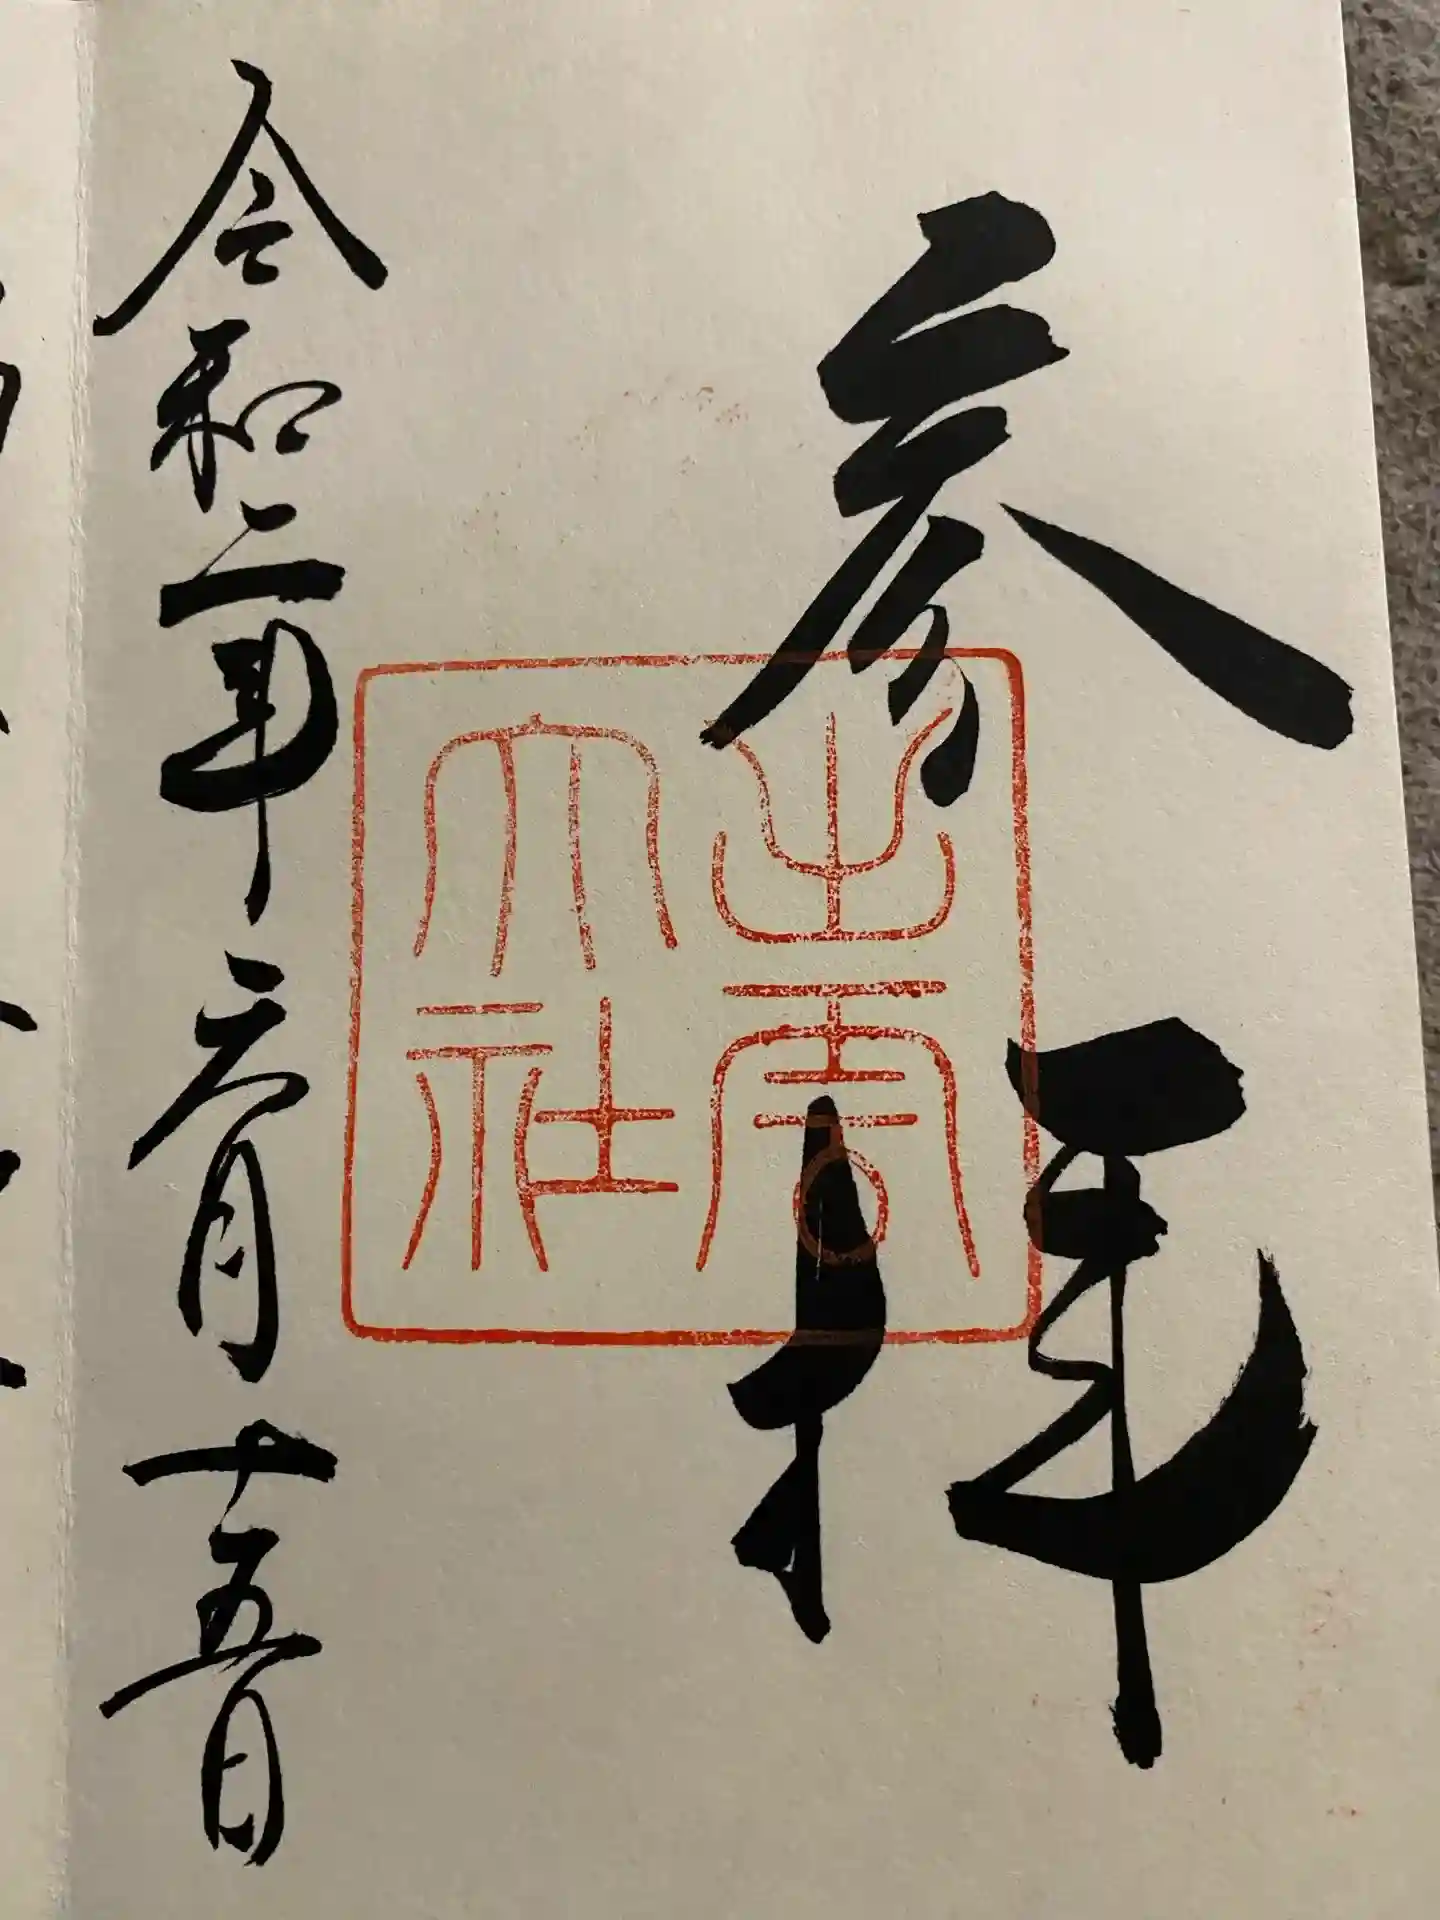 参拝
出雲
大社
令和二年六月十五日